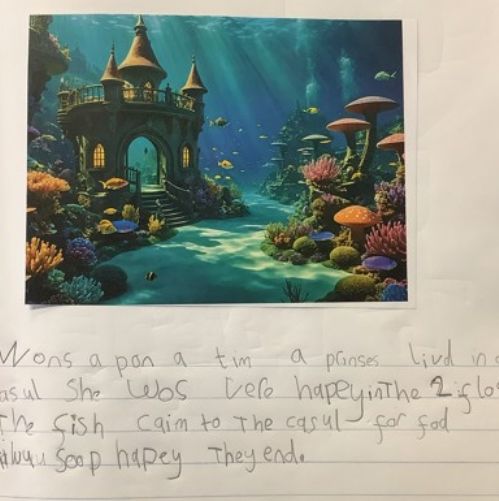 Wons a pon a tim a prinses livd in a
asul She Wos Vere hapey in The 2 iflo
The fish caim to The casul for fod
soop hapey They end.